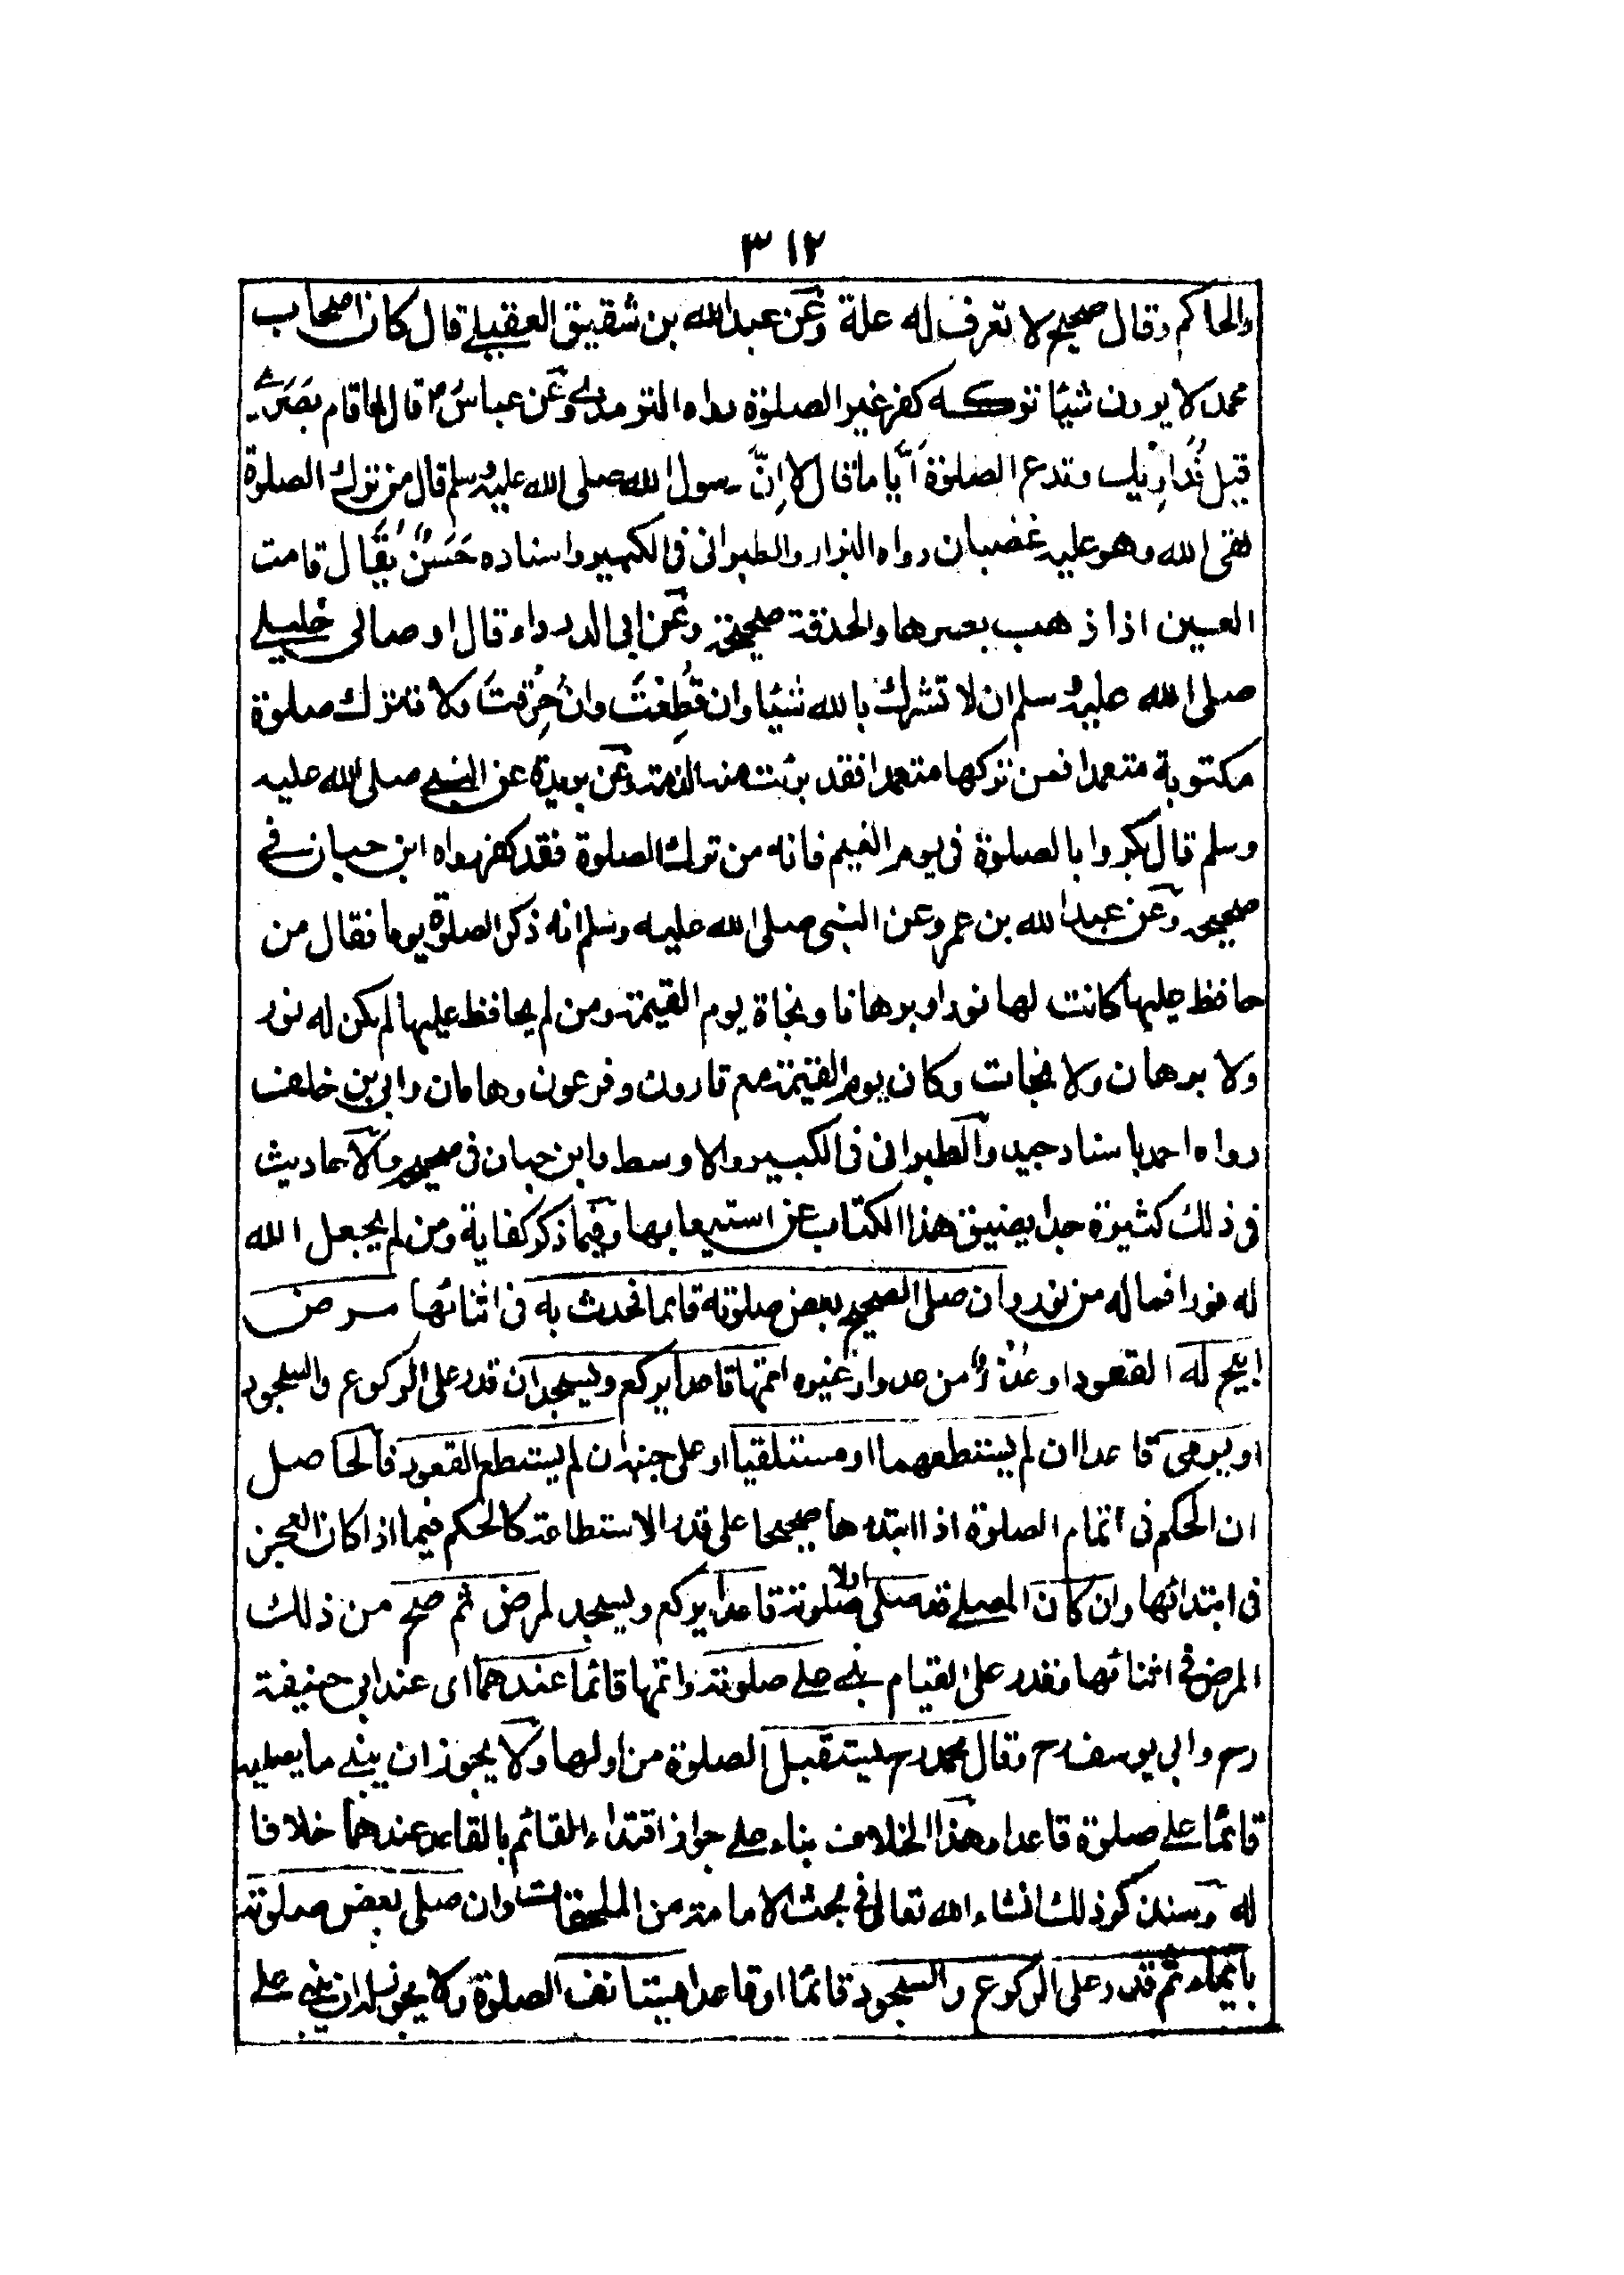 ٣١٢
والحاكم وقال صحيح لا تعرف له علة وعن عبدالله بن شقيق العقيلے قال كان اصحاب
محمد لا يرون شيئا تركه كفر غير الصلوة رواه الترمذي وعن عباس رض قال لما قام بصرے
قيل نُداويك وتدع الصلوة اَيّاما قال لا اِنّ رسول الله صلى الله عليه وسلم قال من ترك الصلوة
لقى الله وهو عليه غضبان رواه البزار والطبرانى فى الكبير واسناده حَسَنٌ يُقَال قامت
العين اذا ذهب بصرها والحدقة صحيحة وعن ابى الدرداء قال اوصانى خليلے
صلى الله عليه وسلم ان لا تشرك بالله شيئا وان قُطِعْتَ وان حُرِّقتَ ولا تترك صلوة
مكتوبة متعمدا فمن تركها متعمدا فقد برئت منه الذمة وعن بريدة عن النبے صلى الله عليه
وسلم قال بكروا بالصلوة فى يوم الغيم فانه من ترك الصلوة فقد كفر رواه ابن حبان فے
صحيحه وعن عبدالله بن عمرو عن النبى صلى الله عليه وسلم انه ذكر الصلوة يوما فقال من
حافظ عليها كانت لها نورا وبرهانا ونجاة يوم القيمة ومن لم يحافظ عليها لم يكن له نور
ولا برهان ولا نجات وكان يوم القيمة مع قارون وفرعون وهامان وابى بن خلف
رواه احمد باسناد جيد والطبرانى فى الكبير والاوسط وابن حبان فى صحيحه والاحاديث
فى ذلك كثيرة جدا يضيق هذا الكتاب عن استيعابها وفيما ذكر كفاية ومن لم يجعل الله
له نورا فما له من نور وان صلى الصحيح بعض صلوته قائما فحدث به فى اثنائها مرض
ابيح له القعود او عُذْرٌ من عدو او غيره اتمها قاعدا يركع ويسجد ان قدر على الركوع والسجود
او يومى قاعدا ان لم يستطعهما او مستلقيا او على جنبه ان لم يستطع القعود فالحاصل
ان الحكم فى اتمام الصلوة اذا ابتدءها صحيحا على قدر الاستطاعة كالحكم فيما اذا كان العجز
فى ابتدائها وان كان المصلے قد صلى اولا صلوته قاعدا يركع ويسجد لمرض ثم صح من ذلك
المرض فى اثنائها وقدر على القيام بنے علے صلوته واتمها قائما عندهما اى عند ابى حنيفة
رح وابى يوسف رح وقال محمد رح يستقبل الصلوة من اولها ولا يجوز ان يبنے ما يصليه
قائما علے صلوة قاعدا وهذا الخلاف بناء علے جواز اقتداء القائم بالقاعد عندهما خلافا
له وسنذكر ذلك انشاء الله تعالى فى بحث الامامة من الملحقات وان صلى بعض صلوته
بايماء ثم قدر على الركوع والسجود قائما او قاعدا يستانف الصلوة ولا يجوز له ان يبنى علے